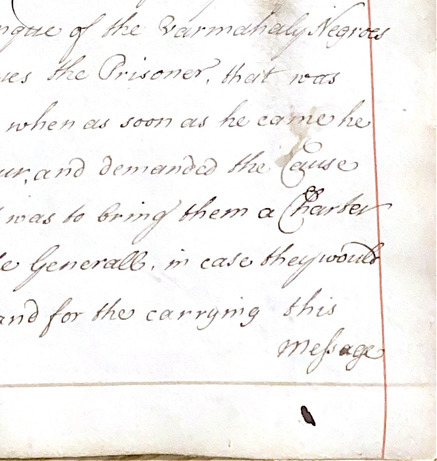 ngue of the Varmahaly Negroes
ues the Prisoner, that was
when as soon as he came he
our, and demanded the Cause
was to bring them a Charter
le Generall, in case they would
and for the carrying this
Message